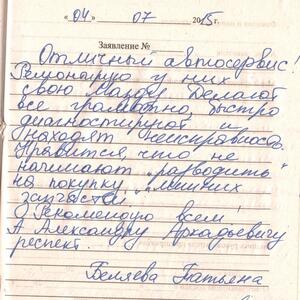 «04» 07 2015г.
Заявление №
Отличный автосервис!
Ремонтирую у них
свою Мазду. Делают
все грамотно, быстро
диагностируют и
находят неисправность.
Нравится, что не
начинают "разводить"
на покупку "лишних"
запчастей.
Рекомендую всем!
А Александру Аркадьевичу
респект.
Беляева Татьяна